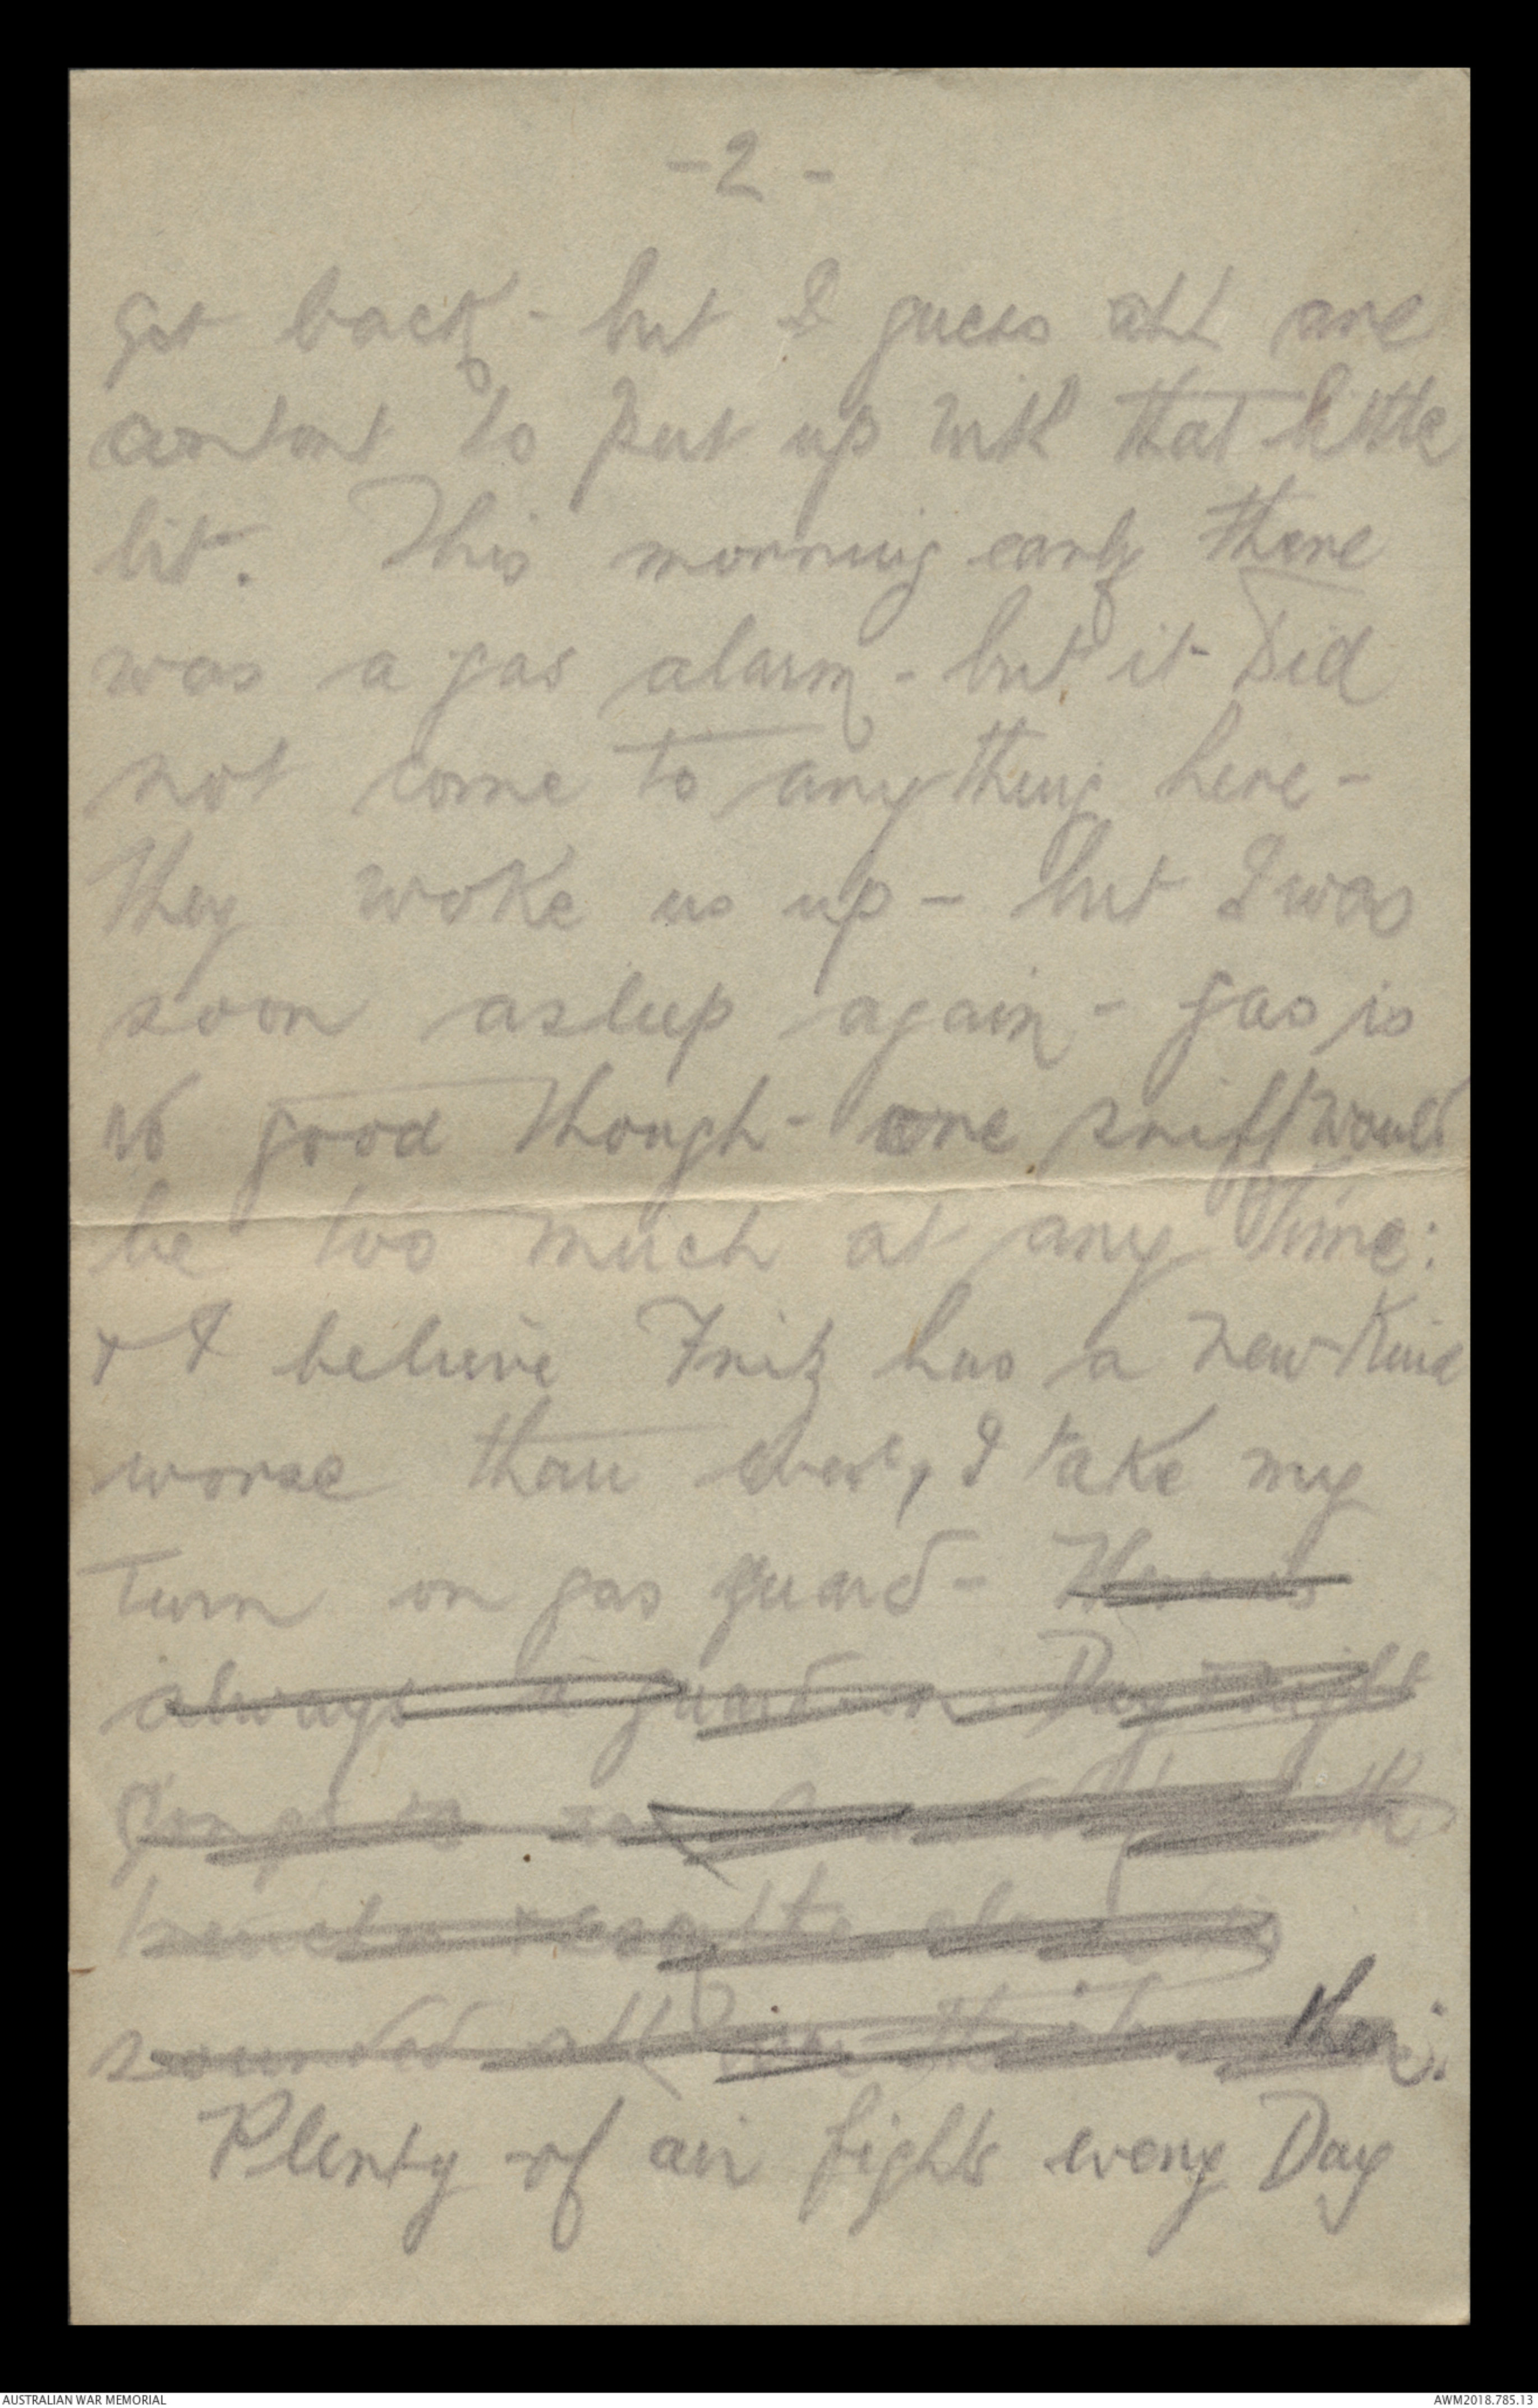 -2-
get back - but I guess all are
content to put up with that little
bit. This morning early there
was a gas alarm - but it Did
not come to anything here -
they woke us up - but I was
soon asleep again - gas is
no good though - one sniff would
be too much at any time:
& I believe Fritz has a new kind
worse than ever, I take my
turn on gas guard - There is
always a guard on Day night
sounded all
then.
Plenty of air fights every Day
AUSTRALIAN WAR MEMORIAL
AWM2018.785.13